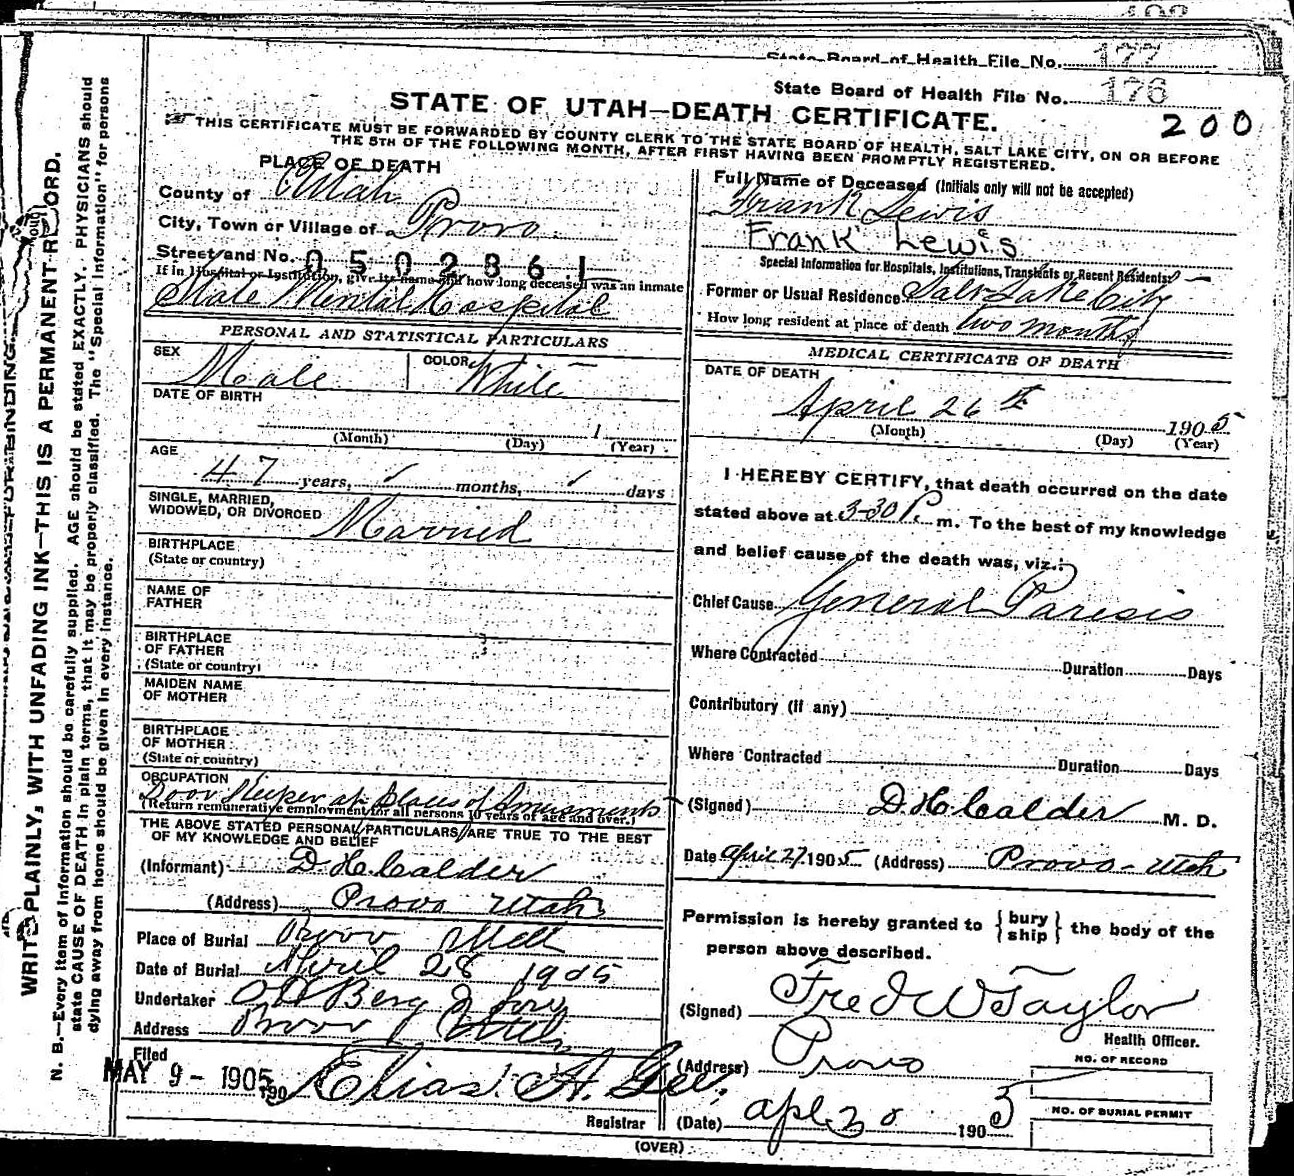 State Board of Health File No. 177
State Board of Health File No. 176
STATE OF UTAH—DEATH CERTIFICATE.
200
THIS CERTIFICATE MUST BE FORWARDED BY COUNTY CLERK TO THE STATE BOARD OF HEALTH, SALT LAKE CITY, ON OR BEFORE
THE 5TH OF THE FOLLOWING MONTH, AFTER FIRST HAVING BEEN PROMPTLY REGISTERED.
WRITE PLAINLY, WITH UNFADING INK—THIS IS A PERMANENT RECORD.
N. B.—Every item of information should be carefully supplied. AGE should be stated EXACTLY. PHYSICIANS should
state CAUSE OF DEATH in plain terms, that it may be properly classified. The "Special Information" for persons
dying away from home should be given in every instance.
PLACE OF DEATH
County of Utah
City, Town or Village of Provo
Street and No. 0502861
If in Hospital or Institution, give its name and how long deceased was an inmate
State Mental Hospital
PERSONAL AND STATISTICAL PARTICULARS
SEX Male COLOR White
DATE OF BIRTH
1
(Month) (Day) (Year)
AGE
47 years, months, days
SINGLE, MARRIED,
WIDOWED, OR DIVORCED Married
BIRTHPLACE
(State or country)
NAME OF
FATHER
BIRTHPLACE
OF FATHER
(State or country)
MAIDEN NAME
OF MOTHER
BIRTHPLACE
OF MOTHER
(State or country)
OCCUPATION
Door Keeper at Places of Amusments
(Return remunerative employment for all persons 10 years of age and over.)
THE ABOVE STATED PERSONAL PARTICULARS ARE TRUE TO THE BEST
OF MY KNOWLEDGE AND BELIEF
(Informant) D. H. Calder
(Address) Provo Utah
Place of Burial Provo Utah
Date of Burial April 28 1905
Undertaker Berg & Sons
Address Provo Utah
Filed
MAY 9 - 1905 190 Elias A. Gee,
Registrar
Full Name of Deceased (Initials only will not be accepted)
Frank Lewis
Frank Lewis
Special Information for Hospitals, Institutions, Transients or Recent Residents.
Former or Usual Residence Salt Lake City
How long resident at place of death two months
MEDICAL CERTIFICATE OF DEATH
DATE OF DEATH
April 26th 1905
(Month) (Day) (Year)
I HEREBY CERTIFY, that death occurred on the date
stated above at 3-30 P. m. To the best of my knowledge
and belief cause of the death was, viz.:
Chief Cause General Paresis
Where Contracted Duration Days
Contributory (if any)
Where Contracted Duration Days
(Signed) D. H. Calder M. D.
Date April 27, 1905 (Address) Provo - Utah
Permission is hereby granted to { bury ship } the body of the
person above described.
(Signed) Fred W Taylor
Health Officer.
(Address) Provo
NO. OF RECORD
NO. OF BURIAL PERMIT
(Date) apl 30 1905
(OVER)